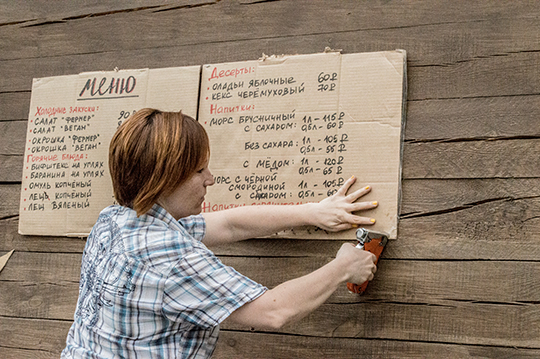 МЕНЮ
Холодные закуски:
• САЛАТ "ФЕРМЕР"
• САЛАТ "ВЕГАН"
• ОКРОШКА "ФЕРМЕР"
• ОКРОШКА "ВЕГАН"
Горячие блюда:
• БИФШТЕКС НА УГЛЯХ
• БАРАНИНА НА УГЛЯХ
ОМУЛЬ КОПЧЁНЫЙ
• ЛЕЩ КОПЧЁНЫЙ
• ЛЕЩ ВЯЛЕНЫЙ
Десерты:
• ОЛАДЬИ ЯБЛОЧНЫЕ 60₽
• КЕКС ЧЕРЁМУХОВЫЙ 70₽
Напитки:
МОРС БРУСНИЧНЫЙ 1л - 115₽
С САХАРОМ: 0,5л - 60₽
БЕЗ САХАРА: 1л - 105₽
0,5л - 55₽
С МЁДОМ: 1л - 120₽
0,5л - 65₽
МОРС С ЧЁРНОЙ СМОРОДИНОЙ 1л - 105₽
С САХАРОМ: 0,5л - 55₽